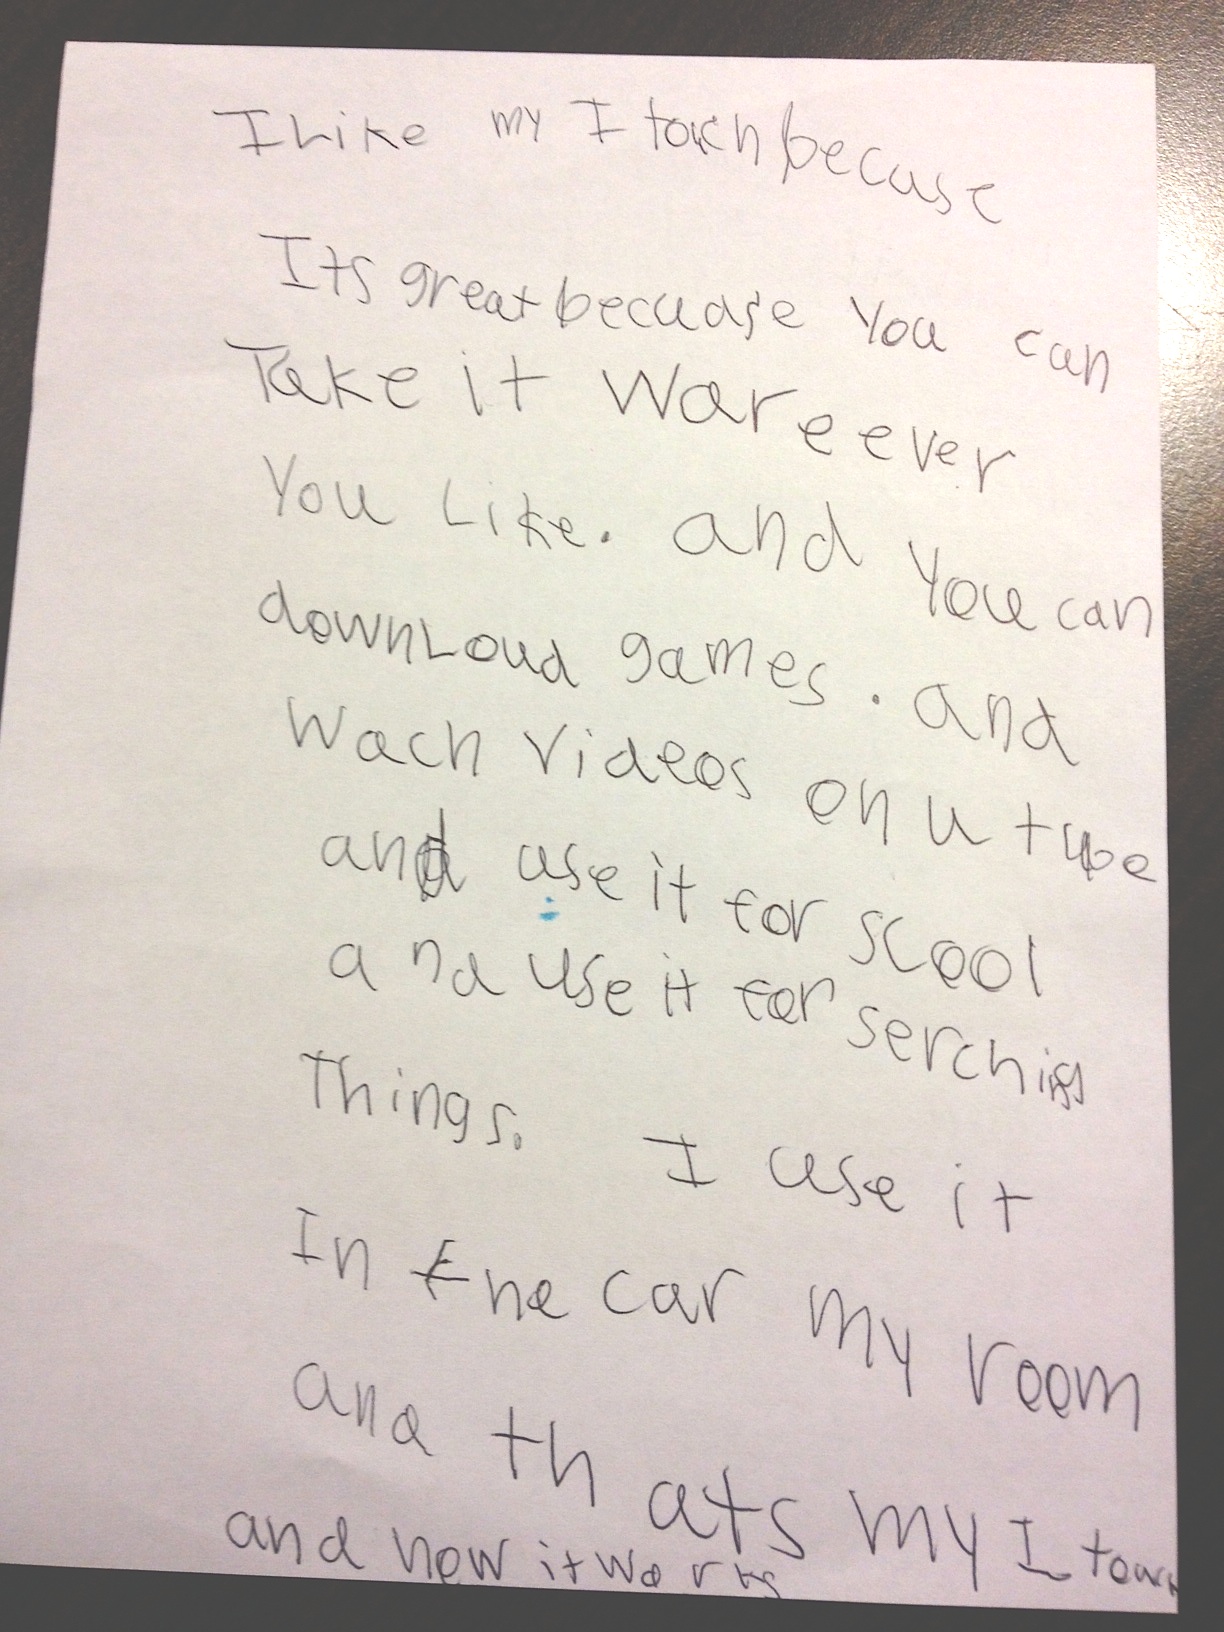 I Like my I touch becuse
Its great becuase You can
Take it Wareever
You Like. and You can
downLoud games. and
Wach videos on u tube
and use it for scool
and use it for serching
Things. I use it
In the car my room
and thats my I touch
and how it works